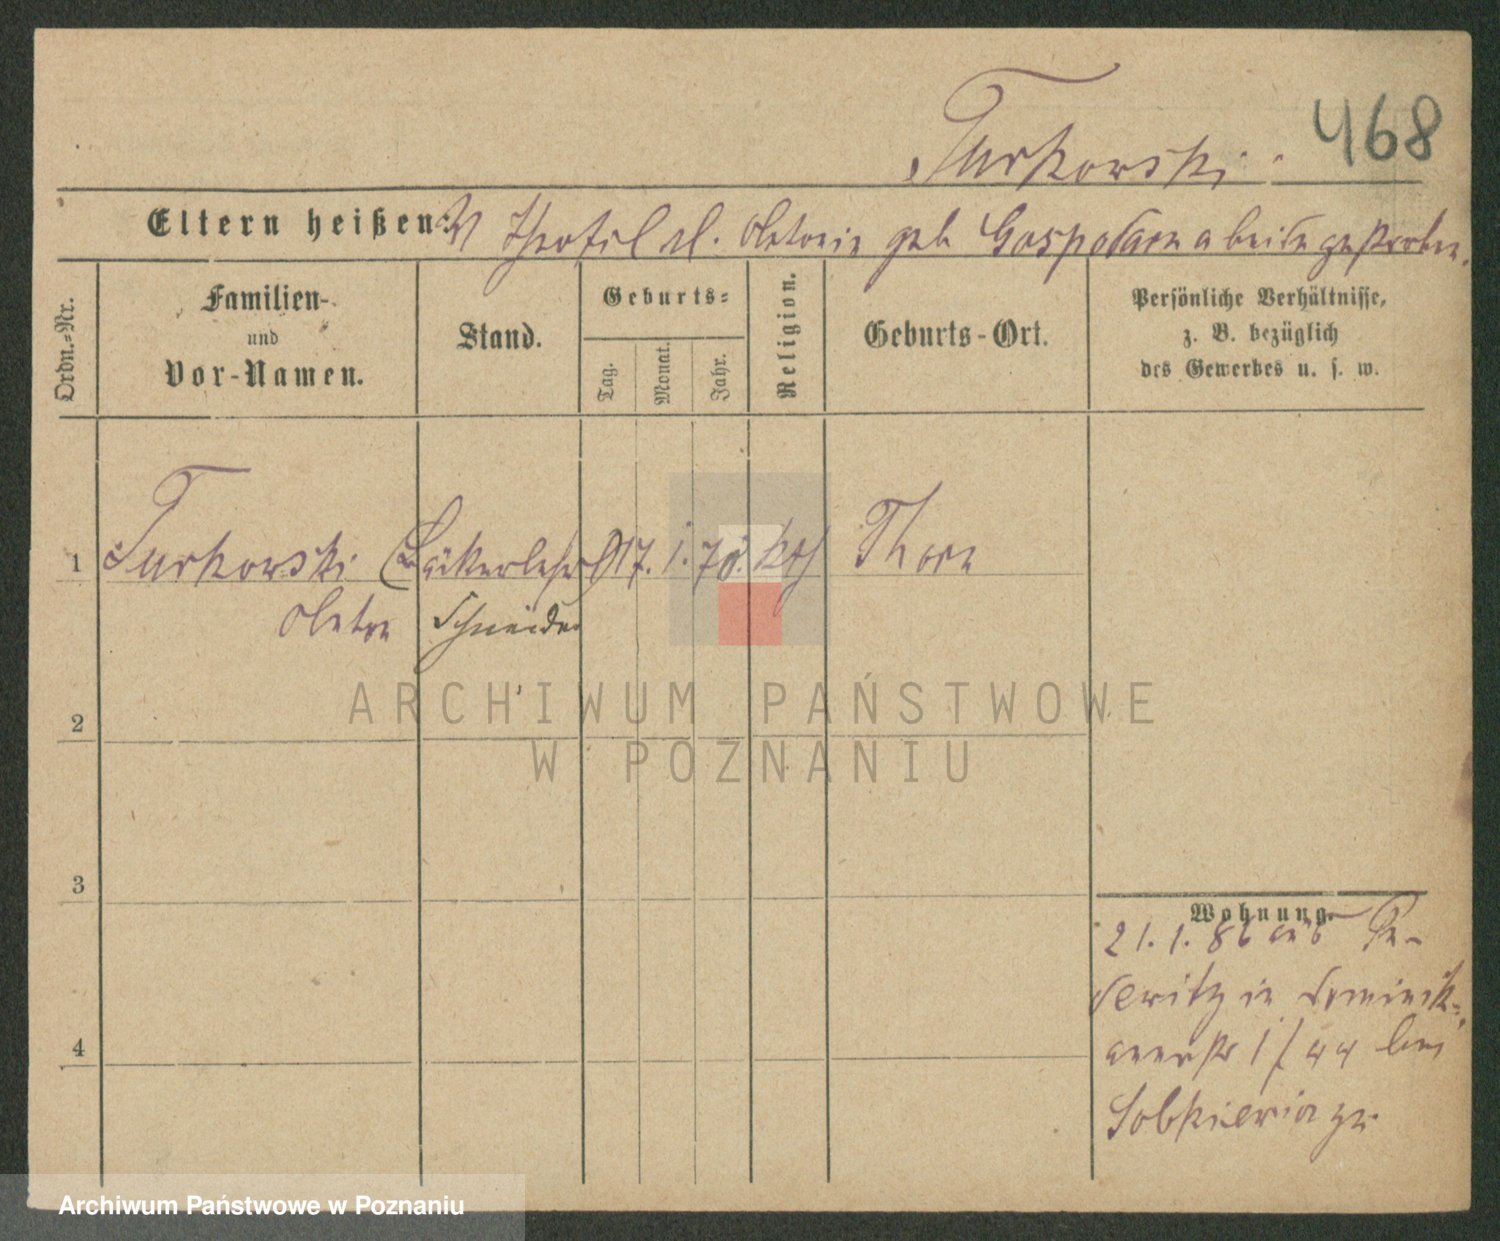 Turkowski.
468
Eltern heißen: Theofil u. geb. beide gestorben.
Ordn.=Nr.
Familien- und Vor-Namen.
Stand.
Geburts=
Tag.
Monat.
Jahr.
Religion.
Geburts-Ort.
Persönliche Verhältnisse,
z. B. bezüglich
des Gewerbes u. s. w.
1 Turkowski (Bäckerlehrl) 17. 1. 70. kth Thorn
Schneider
2
3
4
Wohnung.
21. 1. 86 aus
in Dominik=
anerstr 1/ bei
ARCHIWUM PAŃSTWOWE
W POZNANIU
Archiwum Państwowe w Poznaniu